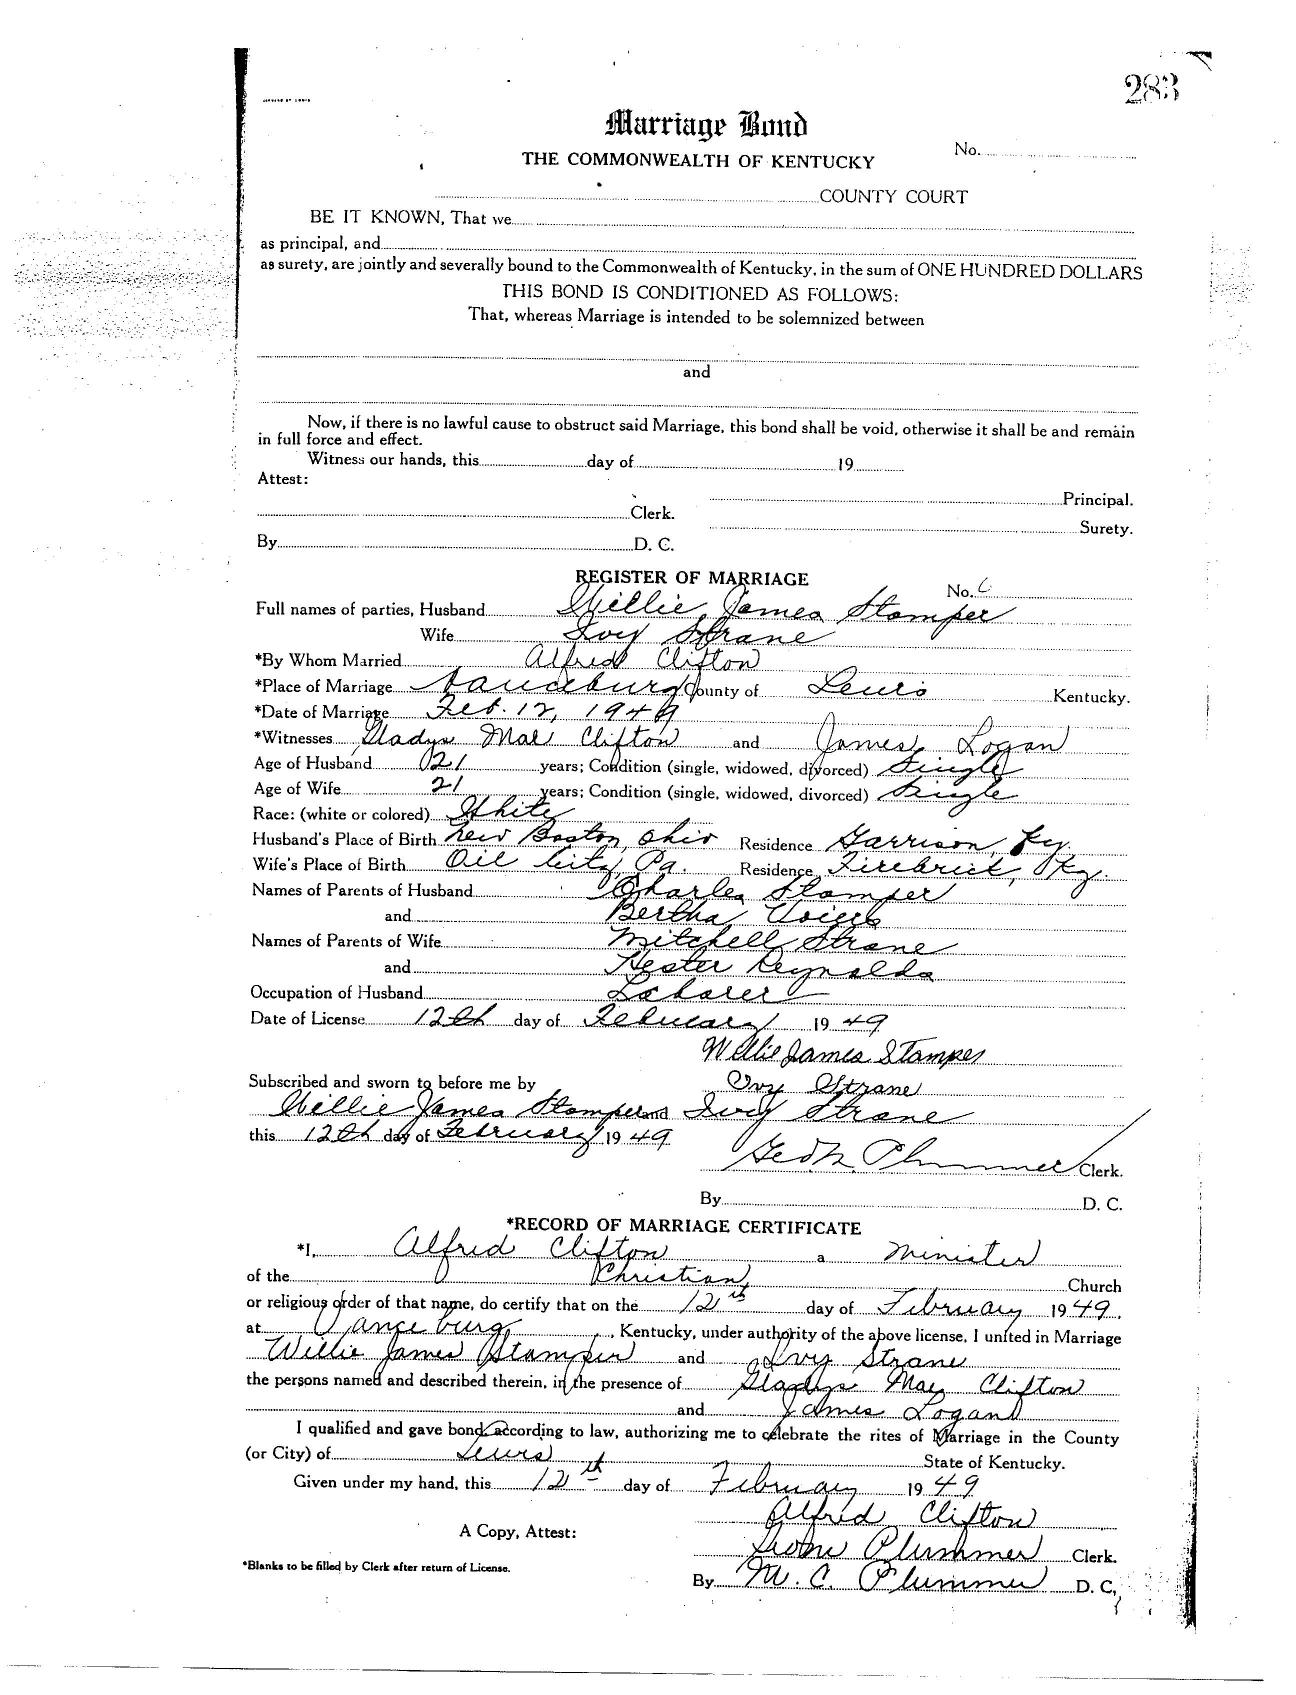 283
Marriage Bond
THE COMMONWEALTH OF KENTUCKY
No.
COUNTY COURT
BE IT KNOWN, That we
as principal, and
as surety, are jointly and severally bound to the Commonwealth of Kentucky, in the sum of ONE HUNDRED DOLLARS
THIS BOND IS CONDITIONED AS FOLLOWS:
That, whereas Marriage is intended to be solemnized between
and
Now, if there is no lawful cause to obstruct said Marriage, this bond shall be void, otherwise it shall be and remain
in full force and effect.
Witness our hands, this day of 19
Attest:
Principal.
Clerk.
Surety.
By D. C.
REGISTER OF MARRIAGE
No.
Full names of parties, Husband Willie James Stamper
Wife Ivy Strane
*By Whom Married Alfred Clifton
*Place of Marriage Vanceburg County of Lewis Kentucky.
*Date of Marriage Feb. 12, 1949
*Witnesses Gladys Mae Clifton and James Logan
Age of Husband 21 years; Condition (single, widowed, divorced) Single
Age of Wife 21 years; Condition (single, widowed, divorced) Single
Race: (white or colored) White
Husband's Place of Birth New Boston, Ohio Residence Garrison, Ky.
Wife's Place of Birth Oil City, Pa. Residence Firebrick, Ky.
Names of Parents of Husband Charles Stamper
and Bertha
Names of Parents of Wife Mitchell Strane
and Hester Reynolds
Occupation of Husband Laborer
Date of License 12th day of February 1949
Willie James Stamper
Subscribed and sworn to before me by Ivy Strane
Willie James Stamper and Ivy Strane
this 12th day of February 1949
Geo. M. Plummer Clerk.
By D. C.
*RECORD OF MARRIAGE CERTIFICATE
*I, Alfred Clifton a Minister
of the Christian Church
or religious order of that name, do certify that on the 12th day of February 1949,
at Vanceburg, Kentucky, under authority of the above license, I united in Marriage
Willie James Stamper and Ivy Strane
the persons named and described therein, in the presence of Gladys Mae Clifton
and James Logan
I qualified and gave bond according to law, authorizing me to celebrate the rites of Marriage in the County
(or City) of Lewis State of Kentucky.
Given under my hand, this 12th day of February 1949
Alfred Clifton
A Copy, Attest:
Plummer Clerk.
*Blanks to be filled by Clerk after return of License.
By M. C. Plummer D. C.